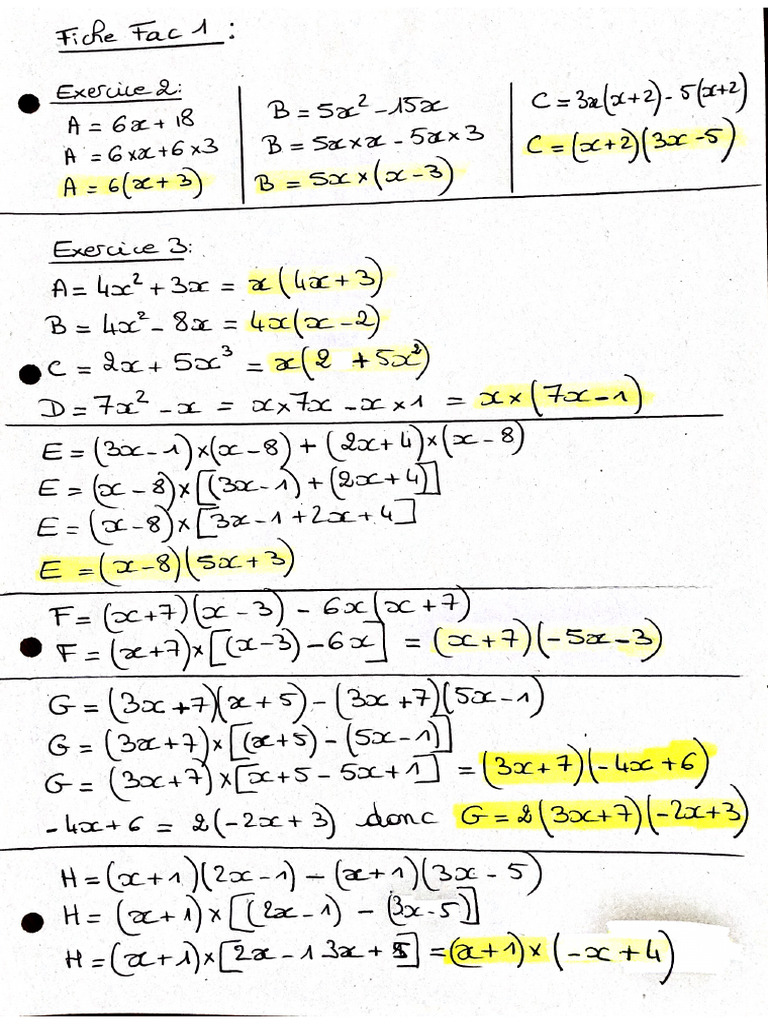 Fiche Fac 1 :
Exercice 2:
A = 6x + 18
A = 6 × x + 6 × 3
A = 6(x + 3)
B = 5x² - 15x
B = 5x × x - 5x × 3
B = 5x × (x - 3)
C = 3x(x+2) - 5(x+2)
C = (x+2)(3x-5)
Exercice 3:
A = 4x² + 3x = x(4x + 3)
B = 4x² - 8x = 4x(x - 2)
C = 2x + 5x³ = x(2 + 5x²)
D = 7x² - x = x × 7x - x × 1 = x × (7x - 1)
E = (3x - 1) × (x - 8) + (2x + 4) × (x - 8)
E = (x - 8) × [(3x - 1) + (2x + 4)]
E = (x - 8) × [3x - 1 + 2x + 4]
E = (x - 8)(5x + 3)
F = (x+7)(x - 3) - 6x(x + 7)
F = (x+7) × [(x-3) - 6x] = (x+7)(-5x - 3)
G = (3x+7)(x + 5) - (3x+7)(5x - 1)
G = (3x+7) × [(x+5) - (5x-1)]
G = (3x+7) × [x+5 - 5x+1] = (3x+7)(-4x+6)
-4x+6 = 2(-2x + 3) donc G = 2(3x+7)(-2x+3)
H = (x+1)(2x-1) - (x+1)(3x - 5)
H = (x+1) × [(2x-1) - (3x-5)]
H = (x+1) × [2x - 1 3x + 5] = (x+1) × (-x + 4)